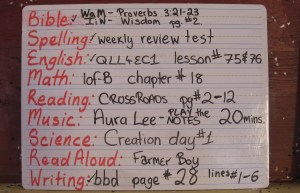 Bible: WaM - Proverbs 3:21-23
IN - Wisdom pg. #2
Spelling: weekly review test
English: QLL4EC1 lesson #75&76
Math: lof-B chapter #18
Reading: CROSSROADS pg#2-12
Music: Aura Lee-PLAY the NOTES 20mins.
Science: Creation day #1
Read Aloud: Farmer Boy
Writing: bbd page #28 lines #1-6